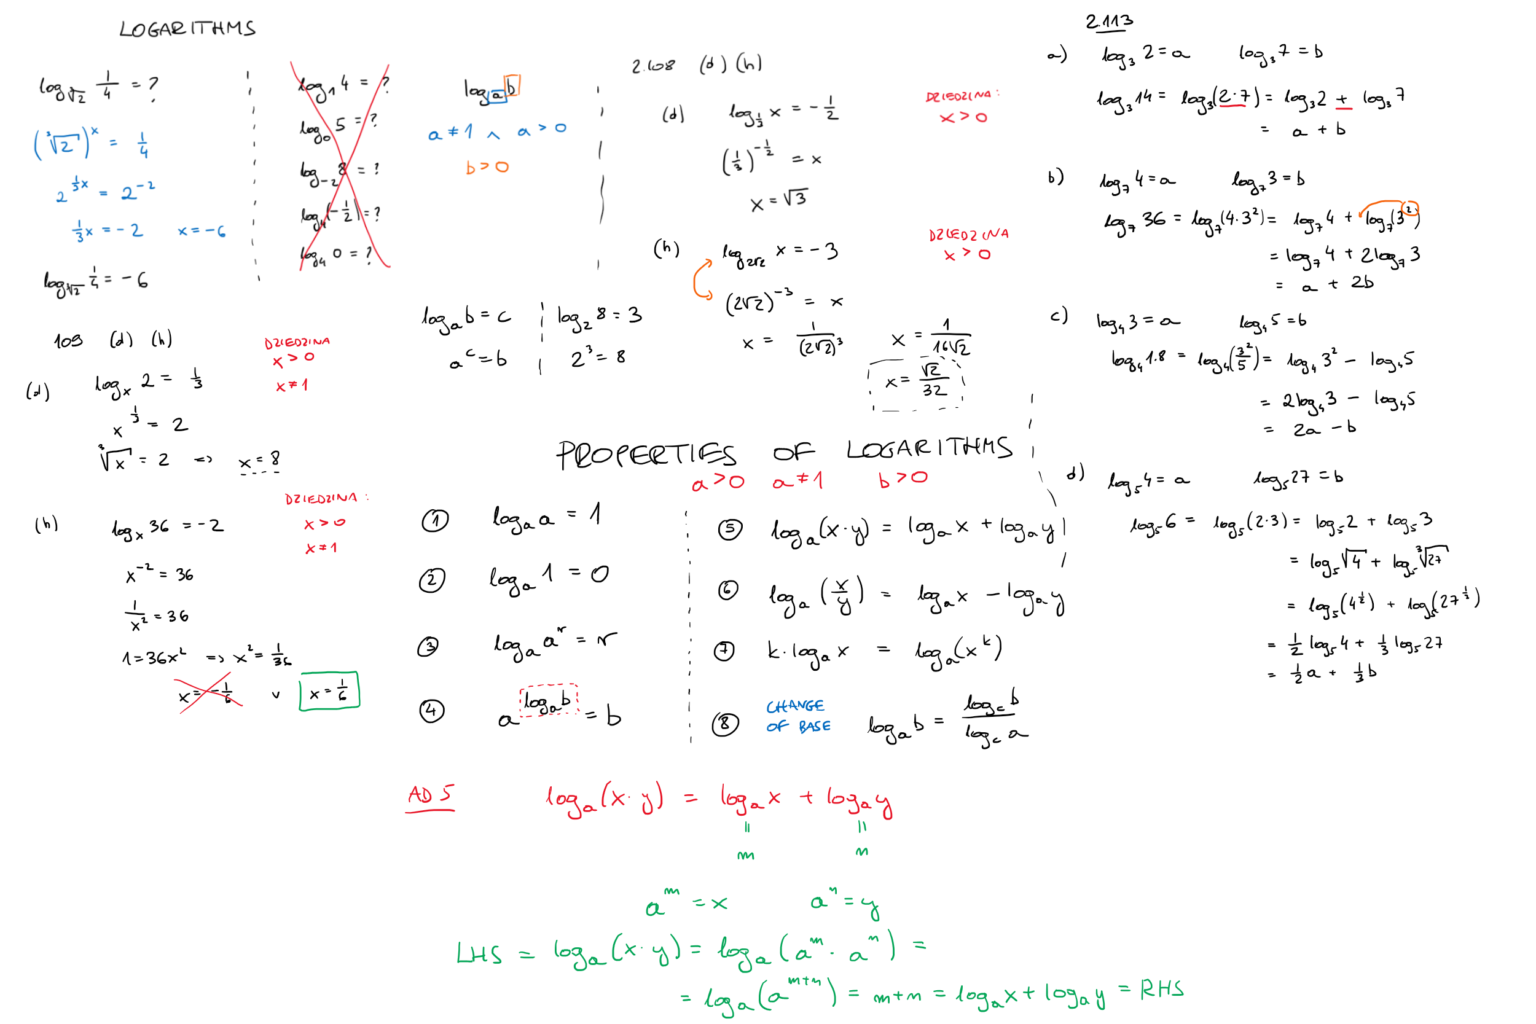 LOGARITHMS
log_∛2 1/4 = ?
(∛2)^x = 1/4
2^(1/3 x) = 2^-2
1/3 x = -2    x = -6
log_∛2 1/4 = -6
log_1 4 = ?
log_0 5 = ?
log_-2 8 = ?
log_4 (-1/2) = ?
log_4 0 = ?
log_a b
a ≠ 1 ∧ a > 0
b > 0
log_a b = c
a^c = b
log_2 8 = 3
2^3 = 8
2.108 (d) (h)
(d) log_1/3 x = -1/2
DZIEDZINA:
x > 0
(1/3)^(-1/2) = x
x = √3
(h) log_2√2 x = -3
DZIEDZINA
x > 0
(2√2)^-3 = x
x = 1/(2√2)^3    x = 1/(16√2)
x = √2/32
109 (d) (h)
(d) log_x 2 = 1/3
DZIEDZINA
x > 0
x ≠ 1
x^(1/3) = 2
∛x = 2 => x = 8
(h) log_x 36 = -2
DZIEDZINA:
x > 0
x ≠ 1
x^-2 = 36
1/x^2 = 36
1 = 36x^2 => x^2 = 1/36
x = -1/6 ∨ x = 1/6
PROPERTIES OF LOGARITHMS
a > 0    a ≠ 1    b > 0
① log_a a = 1
② log_a 1 = 0
③ log_a a^r = r
④ a^(log_a b) = b
⑤ log_a (x·y) = log_a x + log_a y
⑥ log_a (x/y) = log_a x - log_a y
⑦ k·log_a x = log_a (x^k)
⑧ CHANGE OF BASE    log_a b = log_c b / log_c a
AD 5    log_a (x·y) = log_a x + log_a y
=    =
m    n
a^m = x    a^n = y
LHS = log_a (x·y) = log_a (a^m · a^n) =
= log_a (a^(m+n)) = m+n = log_a x + log_a y = RHS
2.113
a) log_3 2 = a    log_3 7 = b
log_3 14 = log_3 (2·7) = log_3 2 + log_3 7
= a + b
b) log_7 4 = a    log_7 3 = b
log_7 36 = log_7 (4·3^2) = log_7 4 + log_7 (3^2)
= log_7 4 + 2log_7 3
= a + 2b
c) log_4 3 = a    log_4 5 = b
log_4 1.8 = log_4 (3^2/5) = log_4 3^2 - log_4 5
= 2log_4 3 - log_4 5
= 2a - b
d) log_5 4 = a    log_5 27 = b
log_5 6 = log_5 (2·3) = log_5 2 + log_5 3
= log_5 √4 + log_5 ∛27
= log_5 (4^(1/2)) + log_5 (27^(1/3))
= 1/2 log_5 4 + 1/3 log_5 27
= 1/2 a + 1/3 b